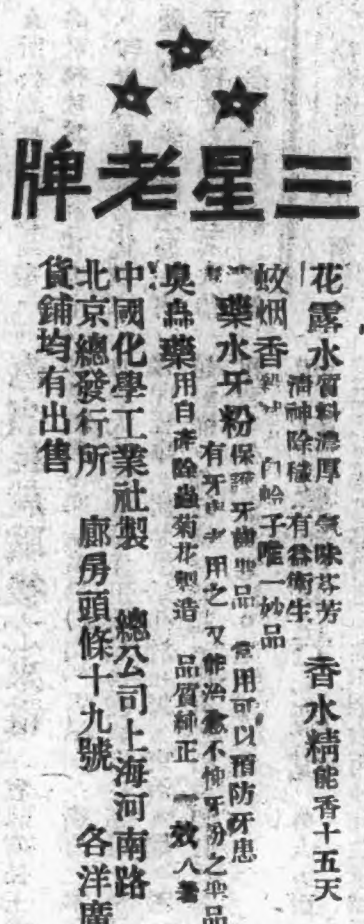 三星老牌
花露水 質料濃厚 氣味芬芳
清神除穢 有益衛生
香水精 能香十五天
蚊烟香 白蛉子唯一妙品
藥水牙粉 保護牙齒聖品 常用可以預防牙患
有牙患者用之 又能治愈不怖牙粉之聖品
臭蟲藥 用自產除蟲菊花製造 品質純正 效
中國化學工業社製 總公司上海河南路
北京總發行所 廊房頭條十九號 各洋廣
貨鋪均有出售